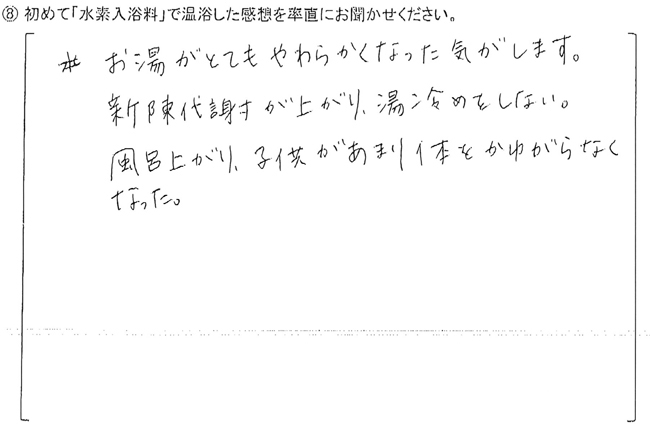 ⑧ 初めて「水素入浴料」で温浴した感想を率直にお聞かせください。
* お湯がとてもやわらかくなった気がします。
新陳代謝が上がり、湯冷めをしない。
風呂上がり、子供があまり体をかゆがらなく
なった。